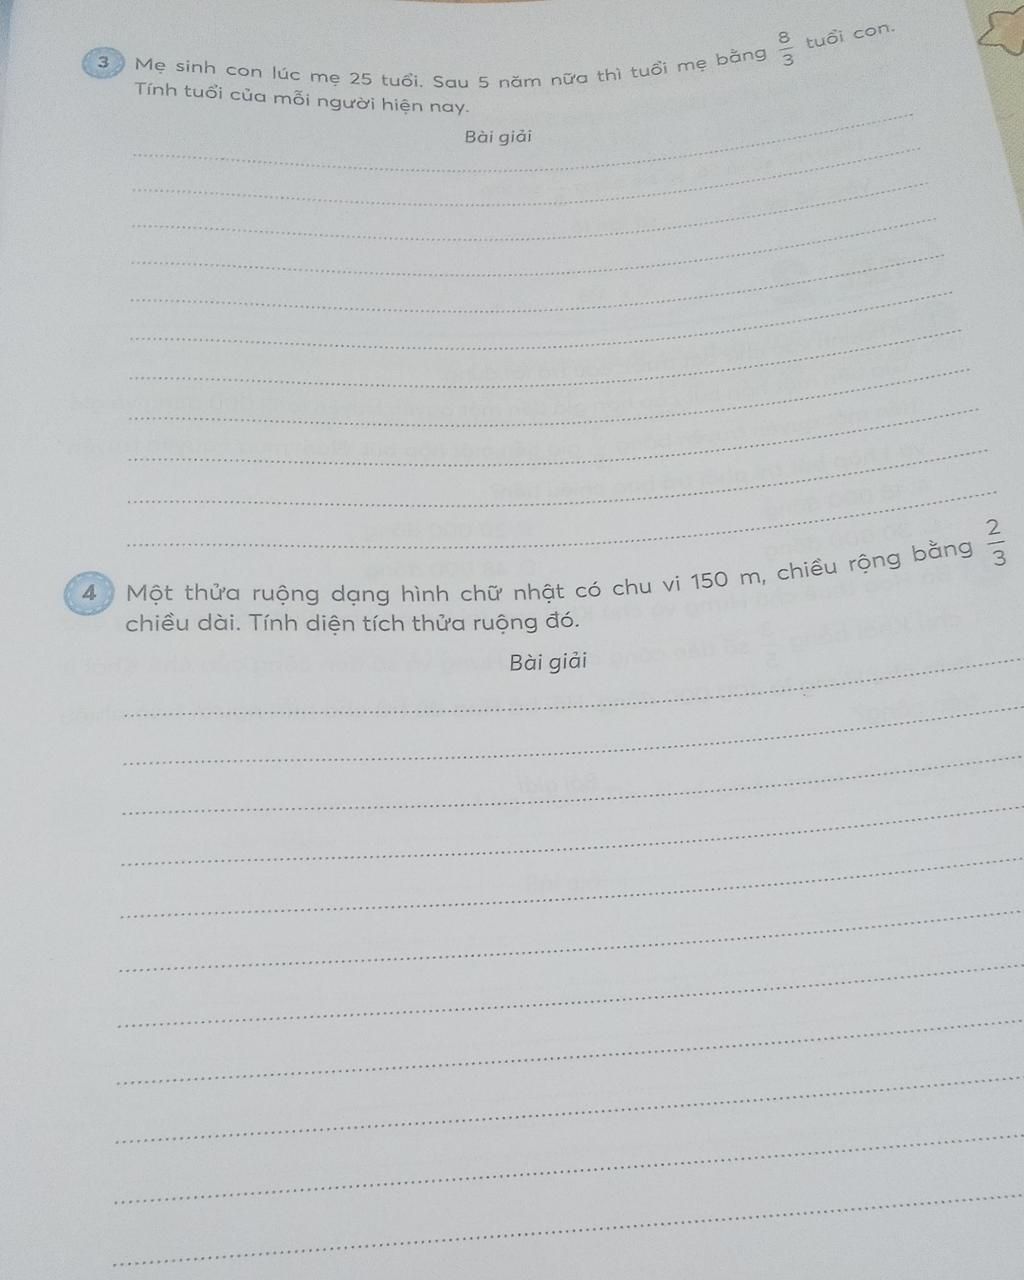 3 Mẹ sinh con lúc mẹ 25 tuổi. Sau 5 năm nữa thì tuổi mẹ bằng 8/3 tuổi con.
Tính tuổi của mỗi người hiện nay.
Bài giải
4 Một thửa ruộng dạng hình chữ nhật có chu vi 150 m, chiều rộng bằng 2/3
chiều dài. Tính diện tích thửa ruộng đó.
Bài giải